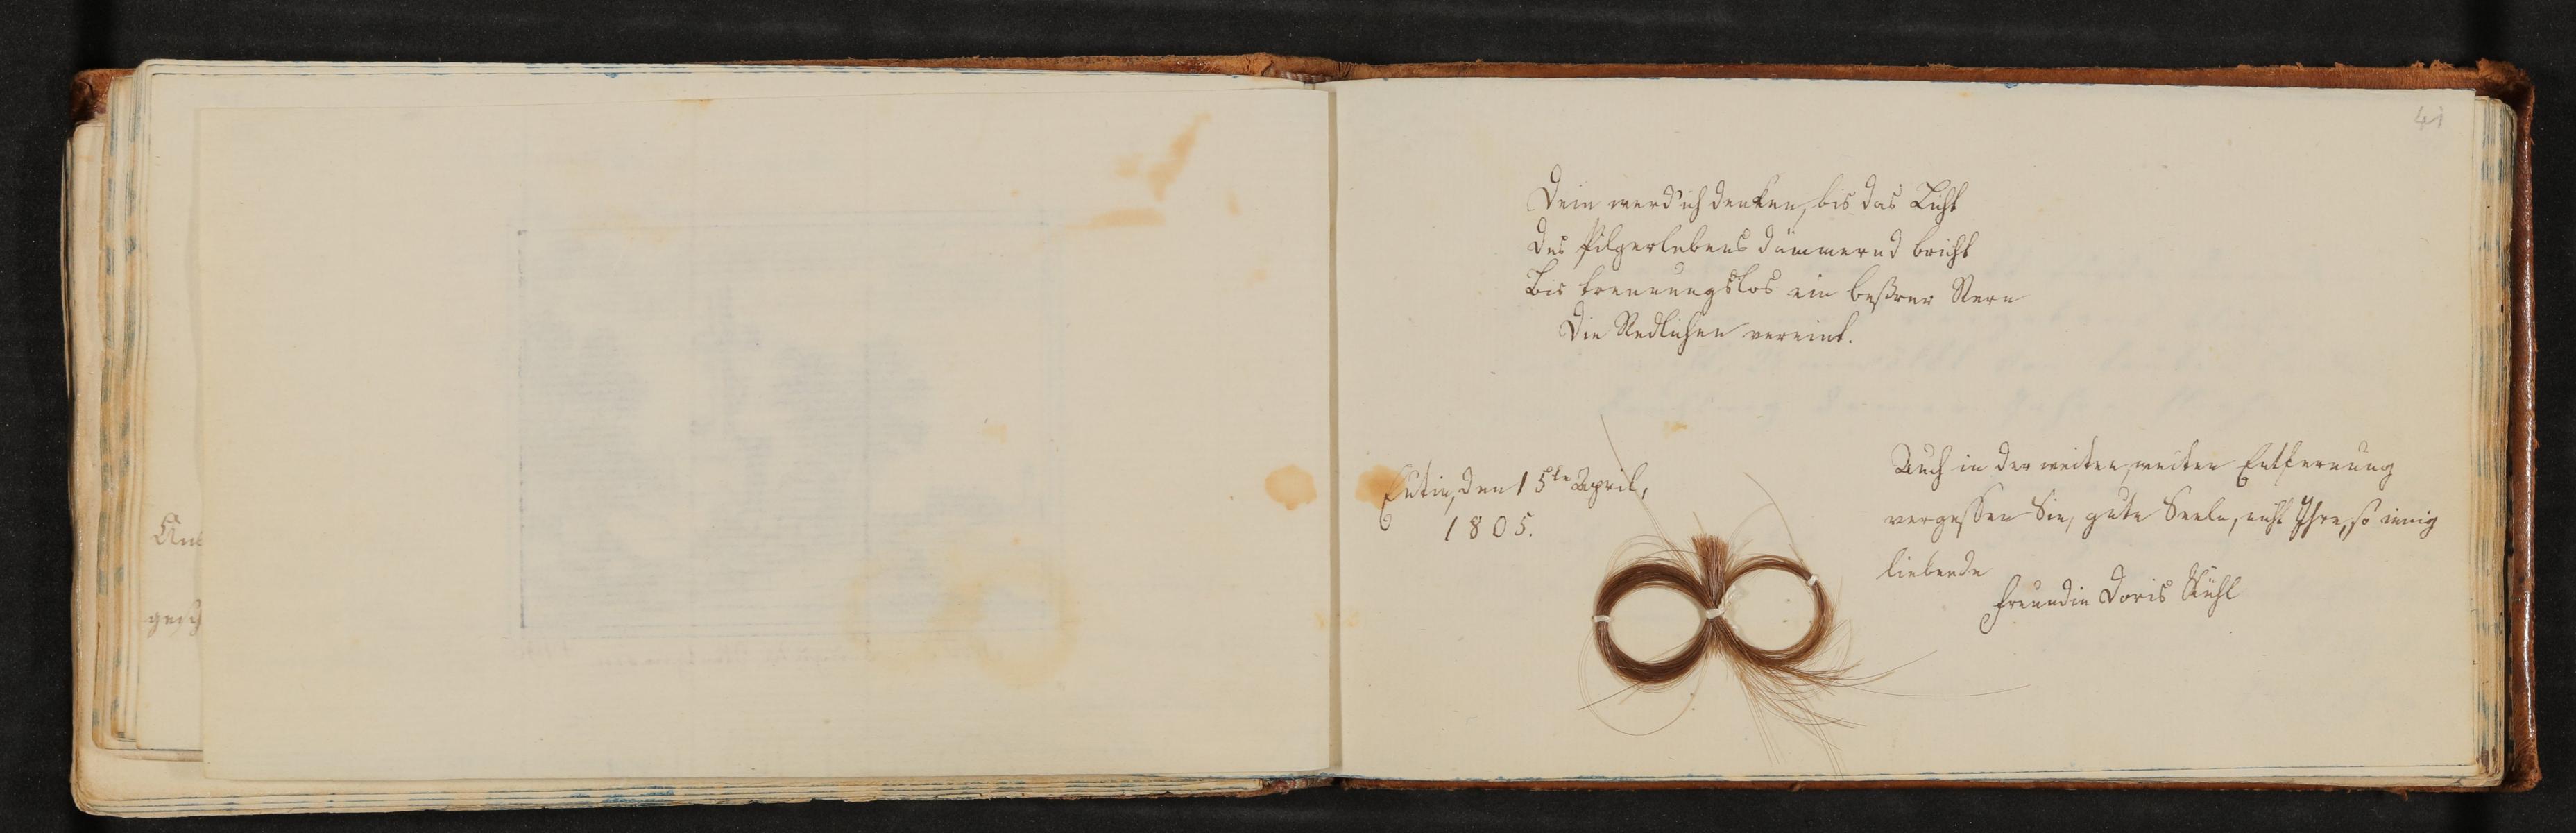 41
Dein werd' ich denken, bis das Licht
Des Pilgerlebens dämmernd bricht
Bis trennungslos ein beßrer Stern
Die Redlichen vereint.
Eutin, den 15te April,
1805.
Auch in der weiten, weiten Entfernung
vergessen Sie, gute Seele, nicht Ihre, so innig
liebende
Freundin Doris